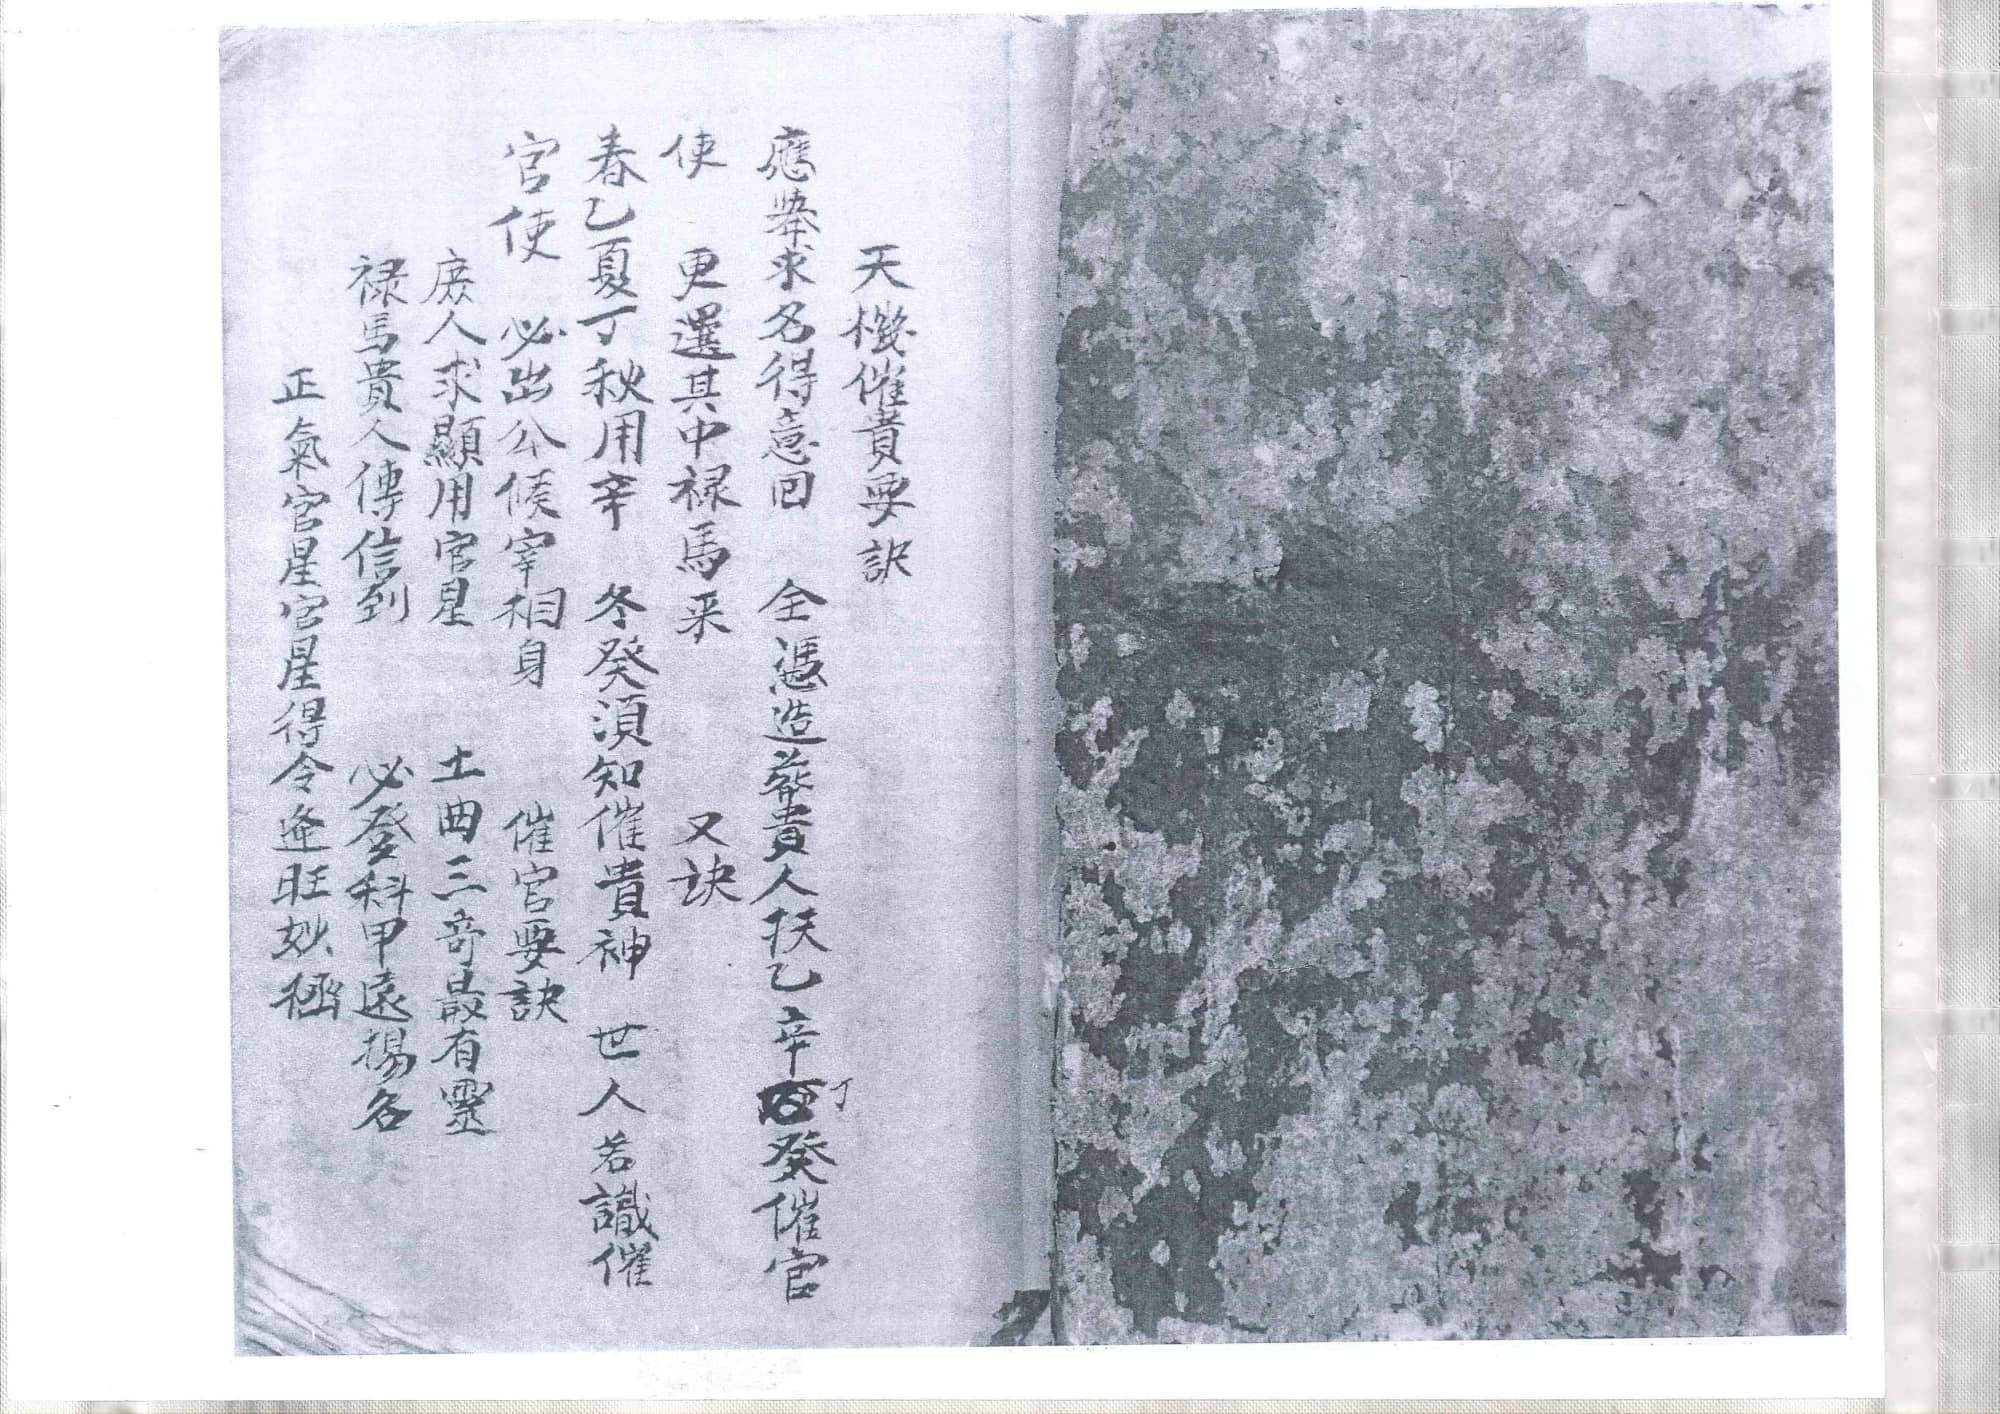 天機催貴要訣
應舉求名得意回　全憑造葬貴人扶乙辛丁癸催官
使　更選其中禄馬来　又訣
春乙夏丁秋用辛　冬癸須知催貴神　世人若識催
官使　必出公候宰相身　催官要訣
庻人求顯用官星　土曲三奇最有靈
禄馬貴人傳信到　必登科甲遠揚名
正氣官星官星得令逢旺妙極